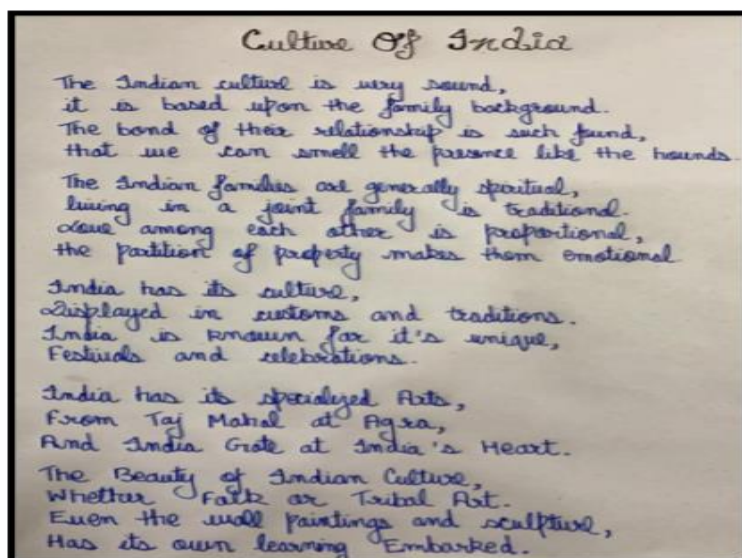 Culture Of India
The Indian culture is very sound,
it is based upon the family background.
The bond of their relationship is such found,
that we can smell the presence like the hounds.
The Indian families are generally spiritual,
living in a joint family is traditional.
Love among each other is proportional,
the partition of property makes them emotional
India has its culture,
Displayed in customs and traditions.
India is known for it's unique,
Festivals and celebrations.
India has its specialized Arts,
From Taj Mahal at Agra,
And India Gate at India's Heart.
The Beauty of Indian Culture,
Whether Folk or Tribal Art.
Even the wall paintings and sculpture,
Has its own learning Embarked.